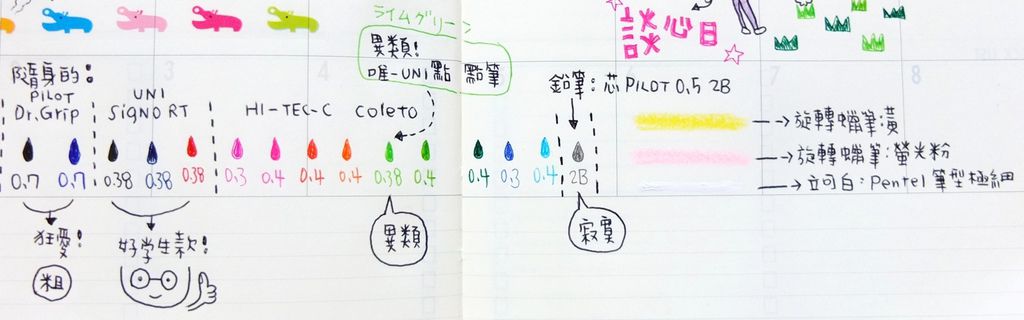 ライムグリーン
異類!
唯一UNI點 點筆
談心日
3
4
7
8
隨身的:
PILOT
Dr.Grip
UNI
SiGNO RT
HI-TEC-C coleto
鉛筆:芯 PILOT 0.5 2B
→旋轉蠟筆:黃
→旋轉蠟筆:螢光粉
→立可白:Pentel 筆型極細
0.7 0.7 0.38 0.38 0.38 0.3 0.4 0.4 0.4 0.38 0.4 0.4 0.3 0.4 2B
狂愛!
粗
好学生款!
異類
寂寞